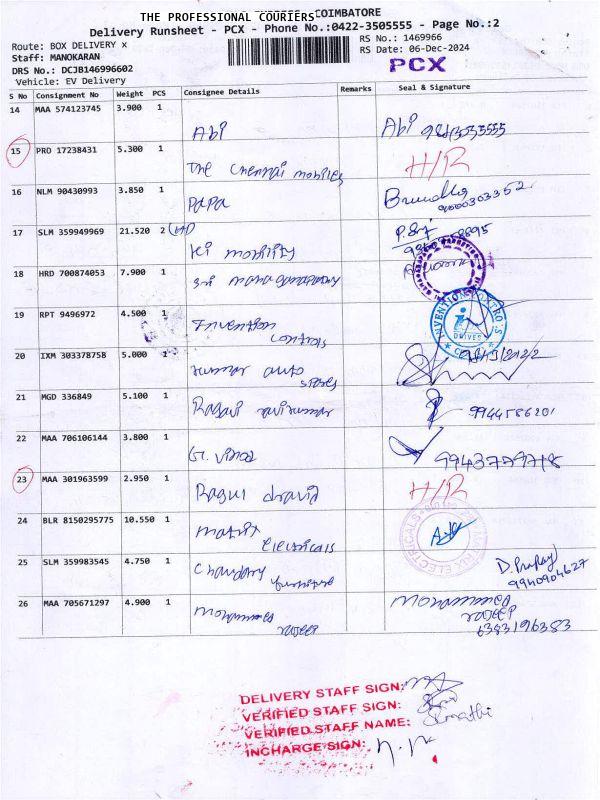 THE PROFESSIONAL COURIERS COIMBATORE
Delivery Runsheet - PCX - Phone No.:0422-3505555 - Page No.:2
Route: BOX DELIVERY x
RS No.: 1469966
Staff: MANOKARAN
RS Date: 06-Dec-2024
DRS No.: DCJB146996602
PCX
Vehicle: EV Delivery
S No Consignment No Weight PCS Consignee Details Remarks Seal & Signature
14 MAA 574123745 3.900 1
Abi Abi
15 PRO 17238431 5.300 1 H/R
The Chennai mobiles
16 NLM 90430993 3.850 1
papa
17 SLM 359949969 21.520 2
ki mobility
18 HRD 700874053 7.900 1
sri
19 RPT 9496972 4.500 1
Invention
controls
INVENTION CONTROLS
DRIVES
20 IXM 303378758 5.000 1
kumar auto
spares
21 MGD 336849 5.100 1
Ragavi ravikumar 9944586201
22 MAA 706106144 3.800 1
G. vinod
23 MAA 301963599 2.950 1 H/R
Ragul dravid
24 BLR 8150295775 10.550 1
matrix
electricals
MATRIX ELECTRICALS
25 SLM 359983545 4.750 1
Chaudary furniture
9940904627
26 MAA 705671297 4.900 1
mohammed mohammed
rajeep rajeep
6383196383
DELIVERY STAFF SIGN:
VERIFIED STAFF SIGN:
VERIFIED STAFF NAME: Sumathi
INCHARGE SIGN: